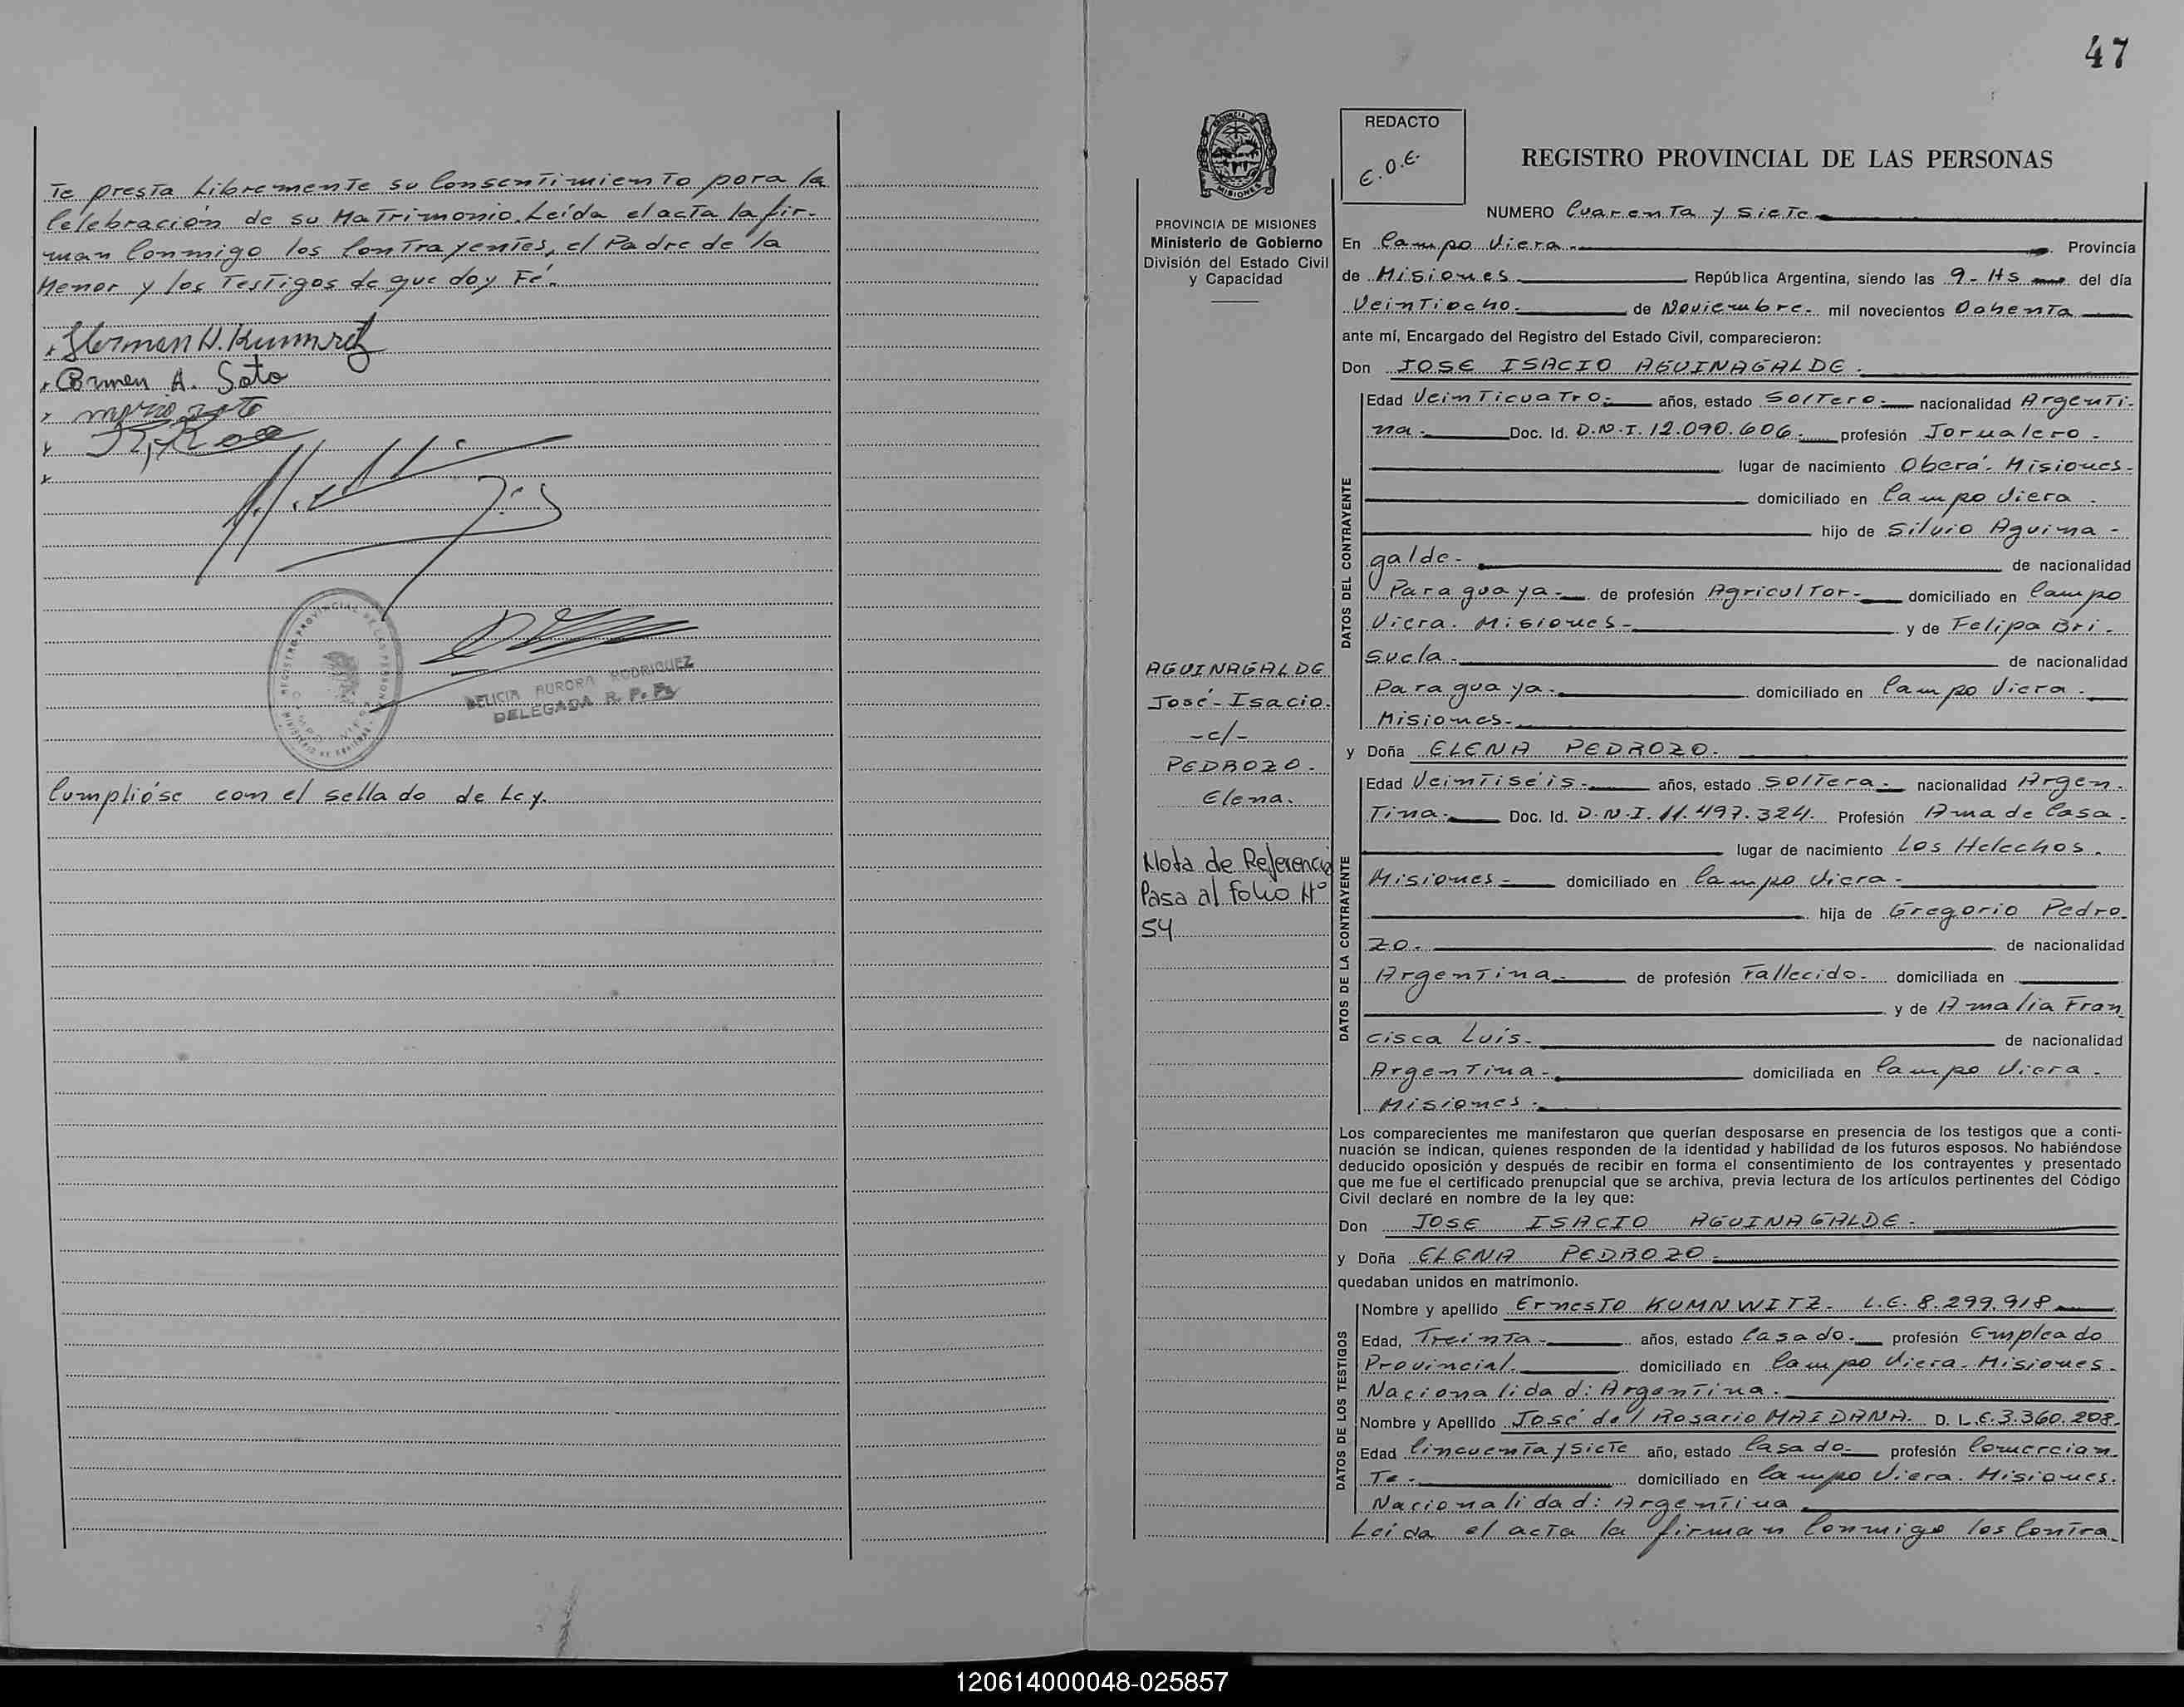 te presta libremente su Consentimiento para la
Celebración de su Matrimonio. Leída el acta la fir-
man Conmigo los Contrayentes, el Padre de la
Menor y los Testigos de que doy Fé.
Carmen A. Soto
DELICIA AURORA RODRIGUEZ
DELEGADA R. P. Ps
Cumplióse con el sellado de Ley.
47
REDACTO
E.O.E.
REGISTRO PROVINCIAL DE LAS PERSONAS
PROVINCIA DE MISIONES
Ministerio de Gobierno
División del Estado Civil
y Capacidad
AGUINAGALDE
José-Isacio.
-c/-
PEDROZO.
Elena.
Nota de Referencia
Pasa al folio Nº
54
NUMERO Cuarenta y Siete
En Campo Viera. Provincia
de Misiones República Argentina, siendo las 9-Hs del día
Veintiocho. de Noviembre. mil novecientos Ochenta
ante mí, Encargado del Registro del Estado Civil, comparecieron:
Don JOSE ISACIO AGUINAGALDE.
DATOS DEL CONTRAYENTE
Edad Veinticuatro- años, estado Soltero- nacionalidad Argenti-
na- Doc. Id. D.N.I. 12.090.606- profesión Jornalero-
lugar de nacimiento Oberá- Misiones-
domiciliado en Campo Viera-
hijo de Silvio Aguina-
galde- de nacionalidad
Paraguaya- de profesión Agricultor- domiciliado en Campo
Viera. Misiones- y de Felipa Bri-
suela- de nacionalidad
Paraguaya- domiciliado en Campo Viera-
Misiones-
y Doña ELENA PEDROZO-
DATOS DE LA CONTRAYENTE
Edad Veintiséis- años, estado Soltera- nacionalidad Argen-
tina- Doc. Id. D.N.I. 11.497.324. Profesión Ama de Casa-
lugar de nacimiento Los Helechos.
Misiones- domiciliado en Campo Viera-
hija de Gregorio Pedro-
zo- de nacionalidad
Argentina- de profesión Fallecido- domiciliada en
y de Amalia Fran
cisca Luis- de nacionalidad
Argentina- domiciliada en Campo Viera-
Misiones-
Los comparecientes me manifestaron que querían desposarse en presencia de los testigos que a conti-
nuación se indican, quienes responden de la identidad y habilidad de los futuros esposos. No habiéndose
deducido oposición y después de recibir en forma el consentimiento de los contrayentes y presentado
que me fue el certificado prenupcial que se archiva, previa lectura de los artículos pertinentes del Código
Civil declaré en nombre de la ley que:
Don JOSE ISACIO AGUINAGALDE-
y Doña ELENA PEDROZO-
quedaban unidos en matrimonio.
DATOS DE LOS TESTIGOS
Nombre y apellido Ernesto KUMNWITZ- L.E. 8.299.918
Edad, Treinta- años, estado Casado- profesión Empleado
Provincial. domiciliado en Campo Viera- Misiones-
Nacionalidad: Argentina.
Nombre y Apellido José del Rosario MAIDANA- D. L.E. 3.360.208-
Edad Cincuenta y Siete año, estado Casado- profesión Comercian-
te- domiciliado en Campo Viera- Misiones.
Nacionalidad: Argentina
Leída el acta la firman Conmigo los Contra-
120614000048-025857